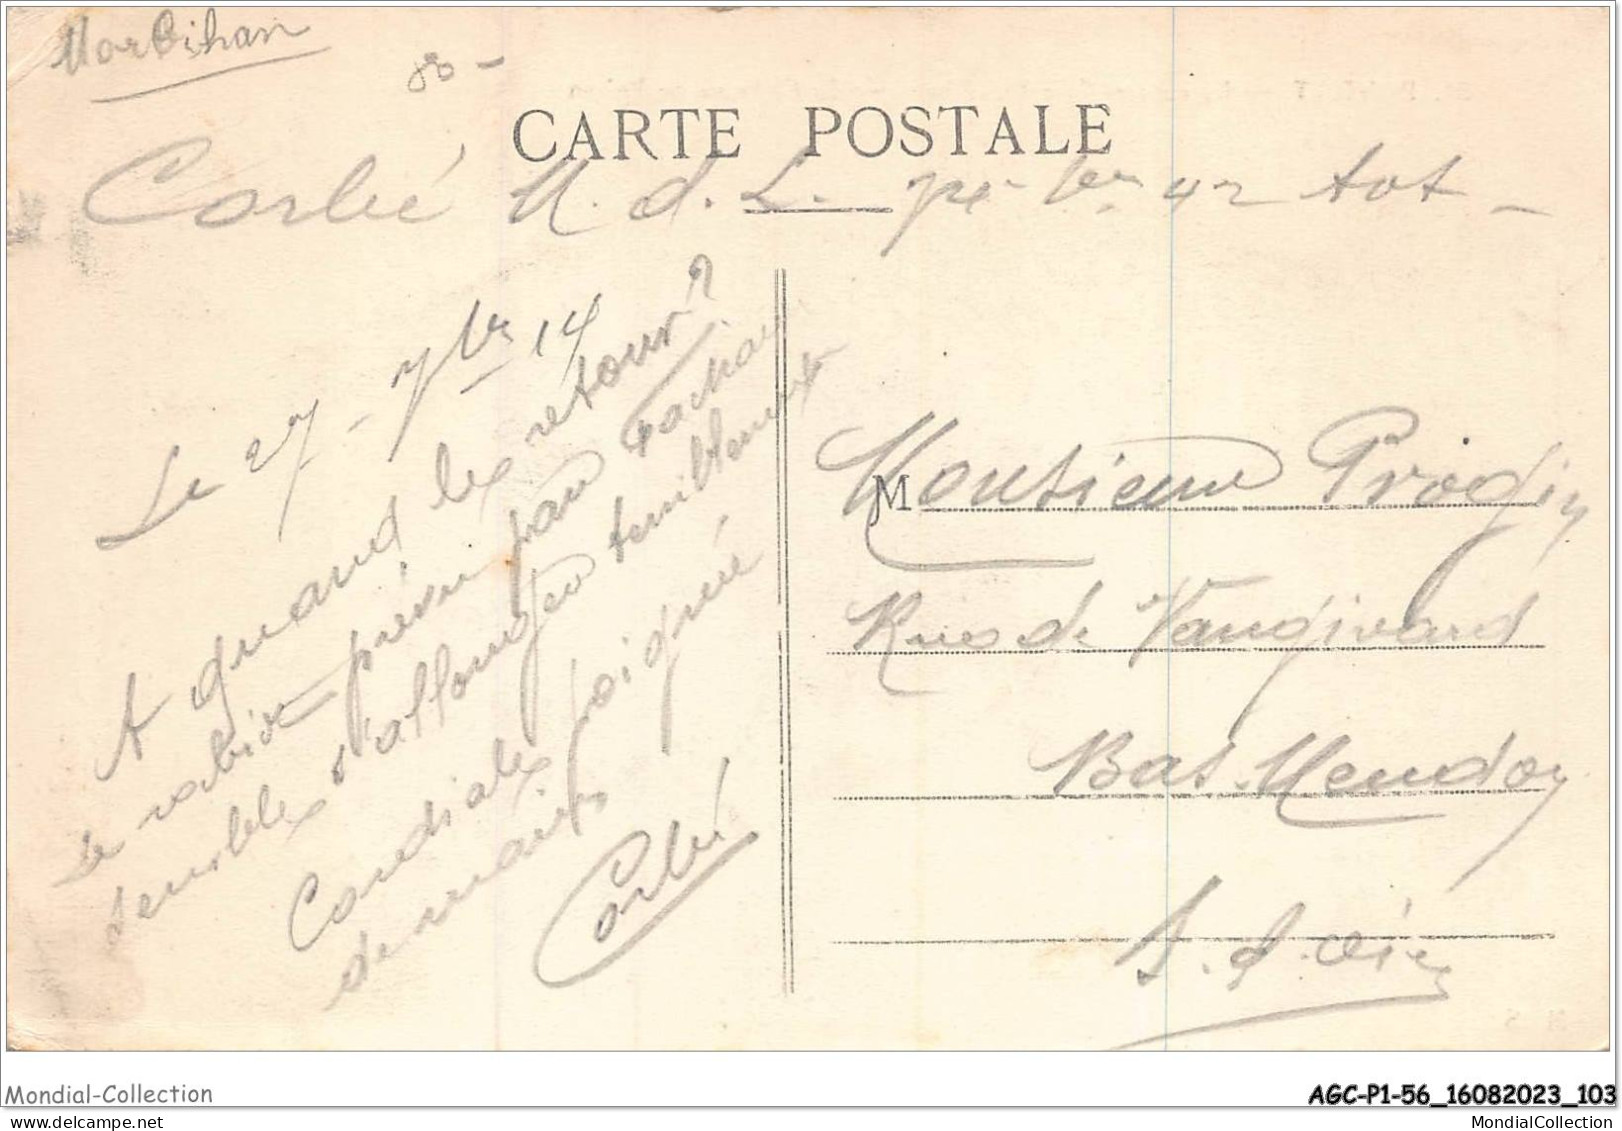 Morbihan
80 -
CARTE POSTALE
Corbié M. d. L. 42
Le 27 - 7bre 14
A quand les retour?
Le rabiot prévu par Pachau
semble s'allonger terriblement
Cordiales poignée
de mains
Corbié
Monsieur Progin
Rue de Vaugirard
Bas Meudon
S. & Oise
Mondial-Collection
AGC-P1-56_16082023_103
www.delcampe.net
MondialCollection